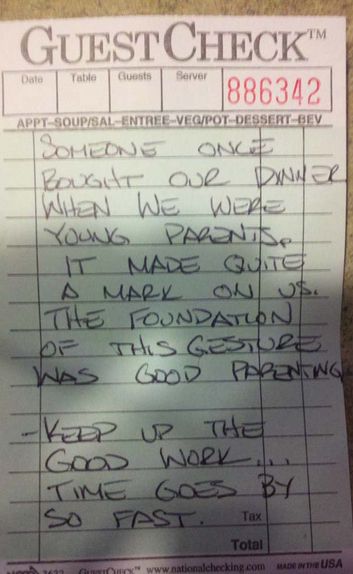 GUESTCHECK™
Date Table Guests Server
886342
APPT-SOUP/SAL-ENTREE-VEG/POT-DESSERT-BEV
SOMEONE ONCE
BOUGHT OUR DINNER
WHEN WE WERE
YOUNG PARENTS.
IT MADE QUITE
A MARK ON US.
THE FOUNDATION
OF THIS GESTURE
WAS GOOD PARENTING
-KEEP UP THE
GOOD WORK...
TIME GOES BY
SO FAST. Tax
Total
GUESTCHECK™ www.nationalchecking.com MADE IN THE USA